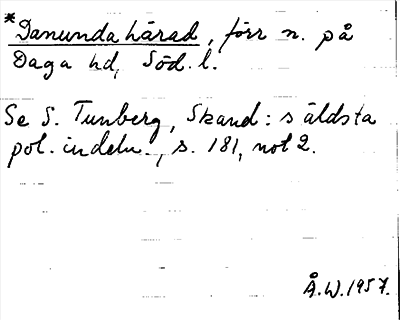 *Danunda härad, förr n. på
Daga hd, Söd. l.
Se S. Tunberg, Skand:s äldsta
pol. indeln., s. 181, not 2.
Å.W.1957.